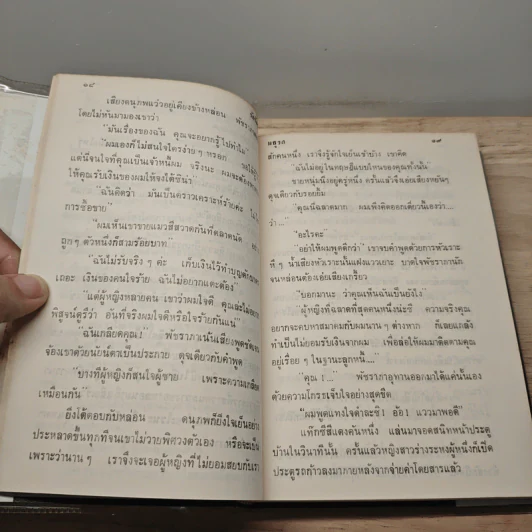 ๑๘
เสียงดนุภพแว่วอยู่เคียงข้างหล่อน พัชราภา
โดยไม่หันมามองเขาว่า
"มันเรื่องของฉัน คุณจะอยากรู้ไปทำไม"
"ผมเองก็ไม่สนใจใครง่าย ๆ หรอก
แต่นี่จนใจที่คุณเป็นเจ้าหนี้ผม จริงนะ ผมจะต้อง
ให้คุณรับเงินของผมให้จงได้ซีน่า"
"ฉันคิดว่า มันเป็นคราวเคราะห์ร้ายค่ะ ไม่
การซื้อขาย"
"ผมเห็นเขาขายแมวสีสวาดกันที่ตลาดนัด
ถูก ๆ ตัวหนึ่งก็สามร้อยบาท"
"ฉันไม่รับจริง ๆ ค่ะ เก็บเงินไว้ทำบุญ
เถอะ เงินของคนใจร้าย ฉันไม่อยากแตะต้อง"
"แต่ผู้หญิงหลายคน เขาว่าผมใจดี คุณ
พิสูจน์ดูรึว่า อันที่จริงผมใจดีหรือใจร้ายกันแน่"
"ฉันเกลียดคุณ!" พัชราภาเน้นเสียงพูด
จ้องเขาด้วยนัยน์ตาเป็นประกาย ดุจเดียวกับคำพูด
"บางทีผู้หญิงก็สนใจผู้ชาย เพราะความเกลียด
เหมือนกัน"
ยิ่งโต้ตอบกับหล่อน ดนุภพก็ยิ่งใจเย็นอย่าง
ประหลาดขึ้นทุกทีจนเขาไม่วายพิศวงตัวเอง หรือจะเป็น
เพราะว่านาน ๆ เราจึงจะเจอผู้หญิงที่ไม่ยอมสยบกับเรา
๑๙
สักคนหนึ่ง เราจึงรู้จักใจเย็นเข้าบ้าง เขาคิด
"ฉันไม่อยู่ในทฤษฎีแบบไหนของคุณทั้งนั้น"
ชายหนุ่มนิ่งอยู่ครู่หนึ่ง ครั้นแล้วจึงเอ่ยเสียงหยัน ๆ
ดุจเดียวกับรอยยิ้ม
"คุณนี่ฉลาดมาก ผมเพิ่งคิดออกเดี๋ยวนี้เองว่า...
ว่า..."
"อะไรคะ"
"อย่าให้ผมพูดดีกว่า" เขาจบคำพูดด้วยการหัวเราะ
หึ ๆ น้ำเสียงหัวเราะนั้นแฝงแววเยาะ บาดใจพัชราภานัก
จนหล่อนต้องเอ่ยเสียงเกรี้ยว
"บอกมานะ ว่าคุณเห็นฉันเป็นยังไง"
"ผู้หญิงที่ฉลาดที่สุดคนหนึ่งน่ะซี ความจริงคุณ
อยากจะคบหาสมาคมกับผมนาน ๆ ต่างหาก ก็เลยแกล้ง
ทำเป็นไม่ยอมรับเงินจากผม เพื่อล่อให้ผมมาติดตามคุณ
อยู่เรื่อย ๆ ในฐานะลูกหนี้...."
"คุณ !" พัชราภาอุทานออกมาได้แค่นั้นเอง
ด้วยความโกรธเจ็บใจอย่างสุดขีด
"ผมพูดแทงใจดำละซิ! อ้อ! แววมาพอดี"
แท๊กซี่สีแดงคันหนึ่ง แล่นมาจอดสนิทหน้าประตู
บ้านในวินาทีนั้น ครั้นแล้วหญิงสาวร่างระหงผู้หนึ่งก็เปิด
ประตูรถก้าวลงมาภายหลังจากจ่ายค่าโดยสารแล้ว